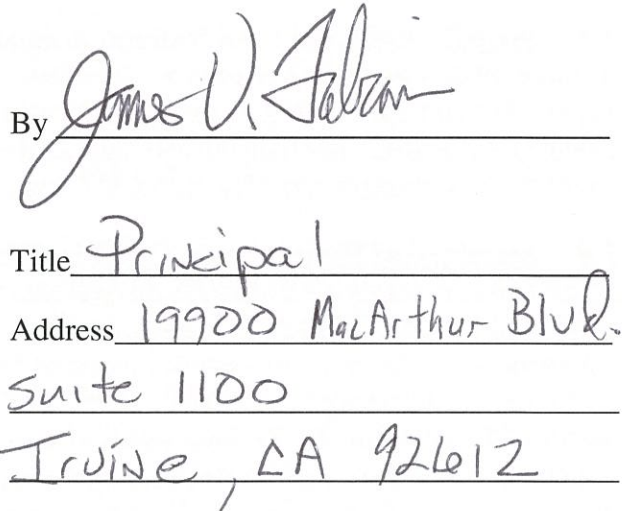 By James V. Fabian
Title Principal
Address 19900 MacArthur Blvd.
Suite 1100
Irvine, CA 92612